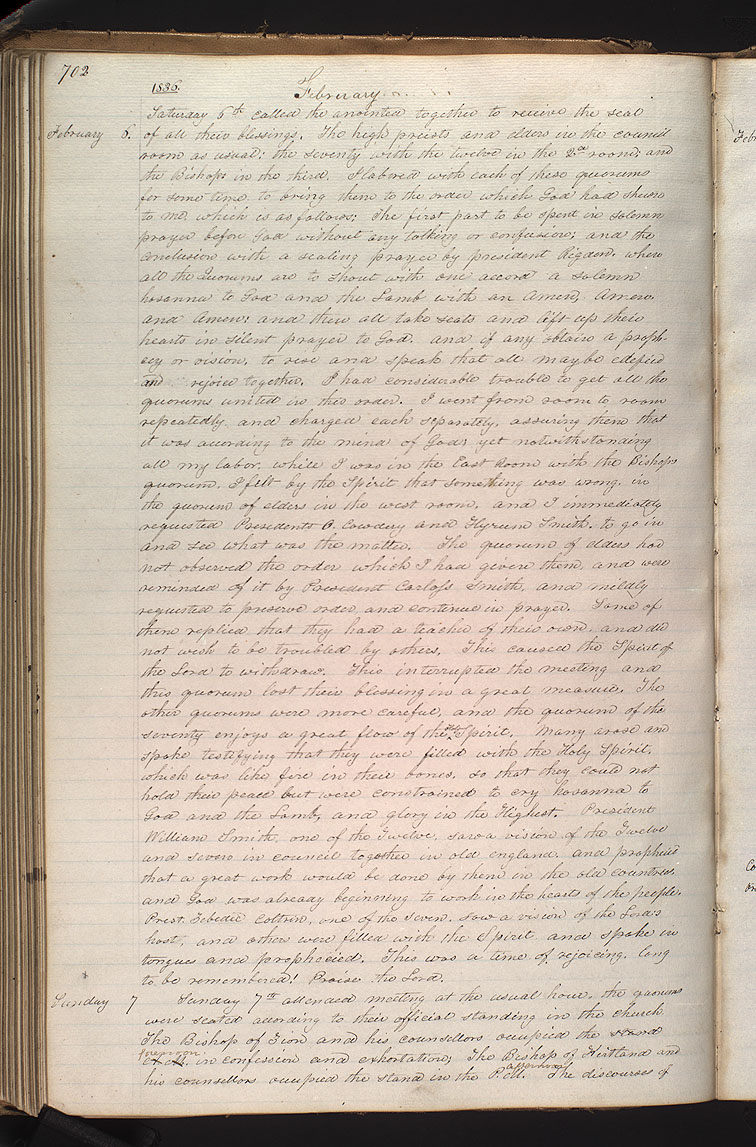 702
1836.
February
Saturday 6th called the anointed together to receive the seal
February 6. of all their blessings. The high priests and elders in the council
room as usual: the seventy with the twelve in the 2d room; and
the Bishops in the third. I labored with each of these quorums
for some time to bring them to the order which God had shewn
to me, which is as follows: The first part to be spent in solemn
prayer before God without any talking or confusion; and the
conclusion with a sealing prayer by president Rigdon, when
all the Quorums are to shout with one accord a solemn
hosanna to God and the Lamb with an Amen, Amen
and Amen: and then all take seats and lift up their
hearts in silent prayer to God, and if any obtain a proph-
ecy or vision, to rise and speak that all may be edified
and rejoice together. I had considerable trouble to get all the
quorums united in this order. I went from room to room
repeatedly, and charged each separately, assuring them that
it was according to the mind of God; yet notwithstanding
all my labor, while I was in the East Room with the Bishops
quorum, I felt by the Spirit that something was wrong, in
the quorum of elders in the west room, and I immediately
requested Presidents O. Cowdery and Hyrum Smith, to go in
and see what was the matter. The quorum of elders had
not observed the order which I had given them, and were
reminded of it by President Carloss Smith, and mildly
requested to preserve order, and continue in prayer. Some of
them replied that they had a teacher of their own, and did
not wish to be troubled by others. This caused the Spirit of
the Lord to withdraw. This interrupted the meeting and
this quorum lost their blessing in a great measure. The
other quorums were more careful, and the quorum of the
seventy enjoys a great flow of the Holy Spirit. Many arose and
spoke testifying that they were filled with the Holy Spirit,
which was like fire in their bones, so that they could not
hold their peace but were constrained to cry hosanna to
God and the Lamb, and glory in the Highest. President
William Smith, one of the Twelve, saw a vision of the Twelve
and seven in council together in old england, and prophesied
that a great work would be done by them in the old countries
and God was already beginning to work in the hearts of the people.
Prest. Zebedie Coltrin, one of the seven, saw a vision of the Lord's
host, and others were filled with the Spirit and spake in
tongues and prophecied. This was a time of rejoicing long
to be remembered! Praise the Lord.
Sunday 7 Sunday 7th attended meeting at the usual hour. the quorums
were seated according to their official standing in the church.
The Bishop of Zion and his counsellors occupied the stand
forenoon
in confession and exhortation; The Bishop of Kirtland and
afternoon
his counsellors occupied the stand in the P.M. The discourses of
Feb